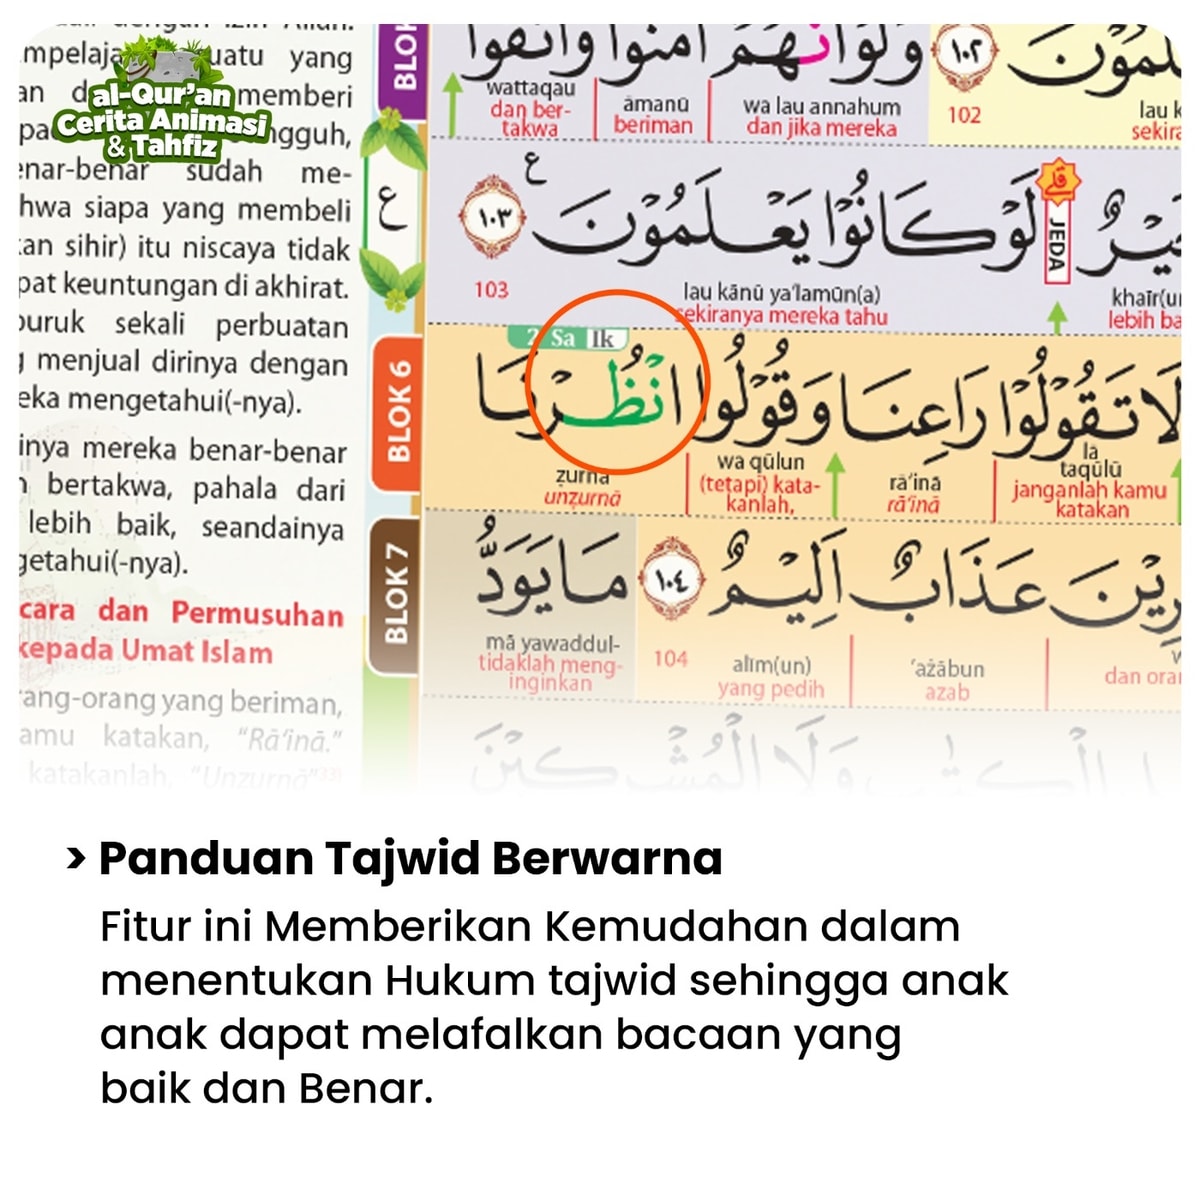 al-Qur'an
Cerita Animasi
& Tahfiz
mpelaja uatu yang
memberi
ngguh,
nar-benar sudah me-
hwa siapa yang membeli
an sihir) itu niscaya tidak
pat keuntungan di akhirat.
buruk sekali perbuatan
menjual dirinya dengan
eka mengetahui(-nya).
inya mereka benar-benar
bertakwa, pahala dari
lebih baik, seandainya
getahui(-nya).
cara dan Permusuhan
kepada Umat Islam
rang-orang yang beriman,
amu katakan, "Rā'inā."
katakanlah, "Unẓurnā"
BLOK
ع
BLOK 6
BLOK 7
وَلَوْ اَنَّهُمْ اٰمَنُوْا وَاتَّقَوْا
١٠٢
wattaqau āmanū wa lau annahum 102 lau k
dan ber- beriman dan jika mereka sekira
takwa
يْرٌ لَوْ كَانُوْا يَعْلَمُوْنَ ع ١٠٣
JEDA
103 lau kānū ya'lamūn(a) khaīr(u
sekiranya mereka tahu lebih ba
2 Sa Ik
لَا تَقُوْلُوْا رَاعِنَا وَقُوْلُوا انْظُرْنَا
ẓurnā wa qūlun rā'inā lā
taqūlū
unẓurnā (tetapi) kata- rā'inā janganlah kamu
kanlah, katakan
رِيْنَ عَذَابٌ اَلِيْمٌ ١٠٤ مَا يَوَدُّ
mā yawaddul- 104 alīm(un) 'ażābun
tidaklah meng- yang pedih azab dan ora
inginkan
وَلَا الْمُشْرِكِيْنَ
> Panduan Tajwid Berwarna
Fitur ini Memberikan Kemudahan dalam
menentukan Hukum tajwid sehingga anak
anak dapat melafalkan bacaan yang
baik dan Benar.